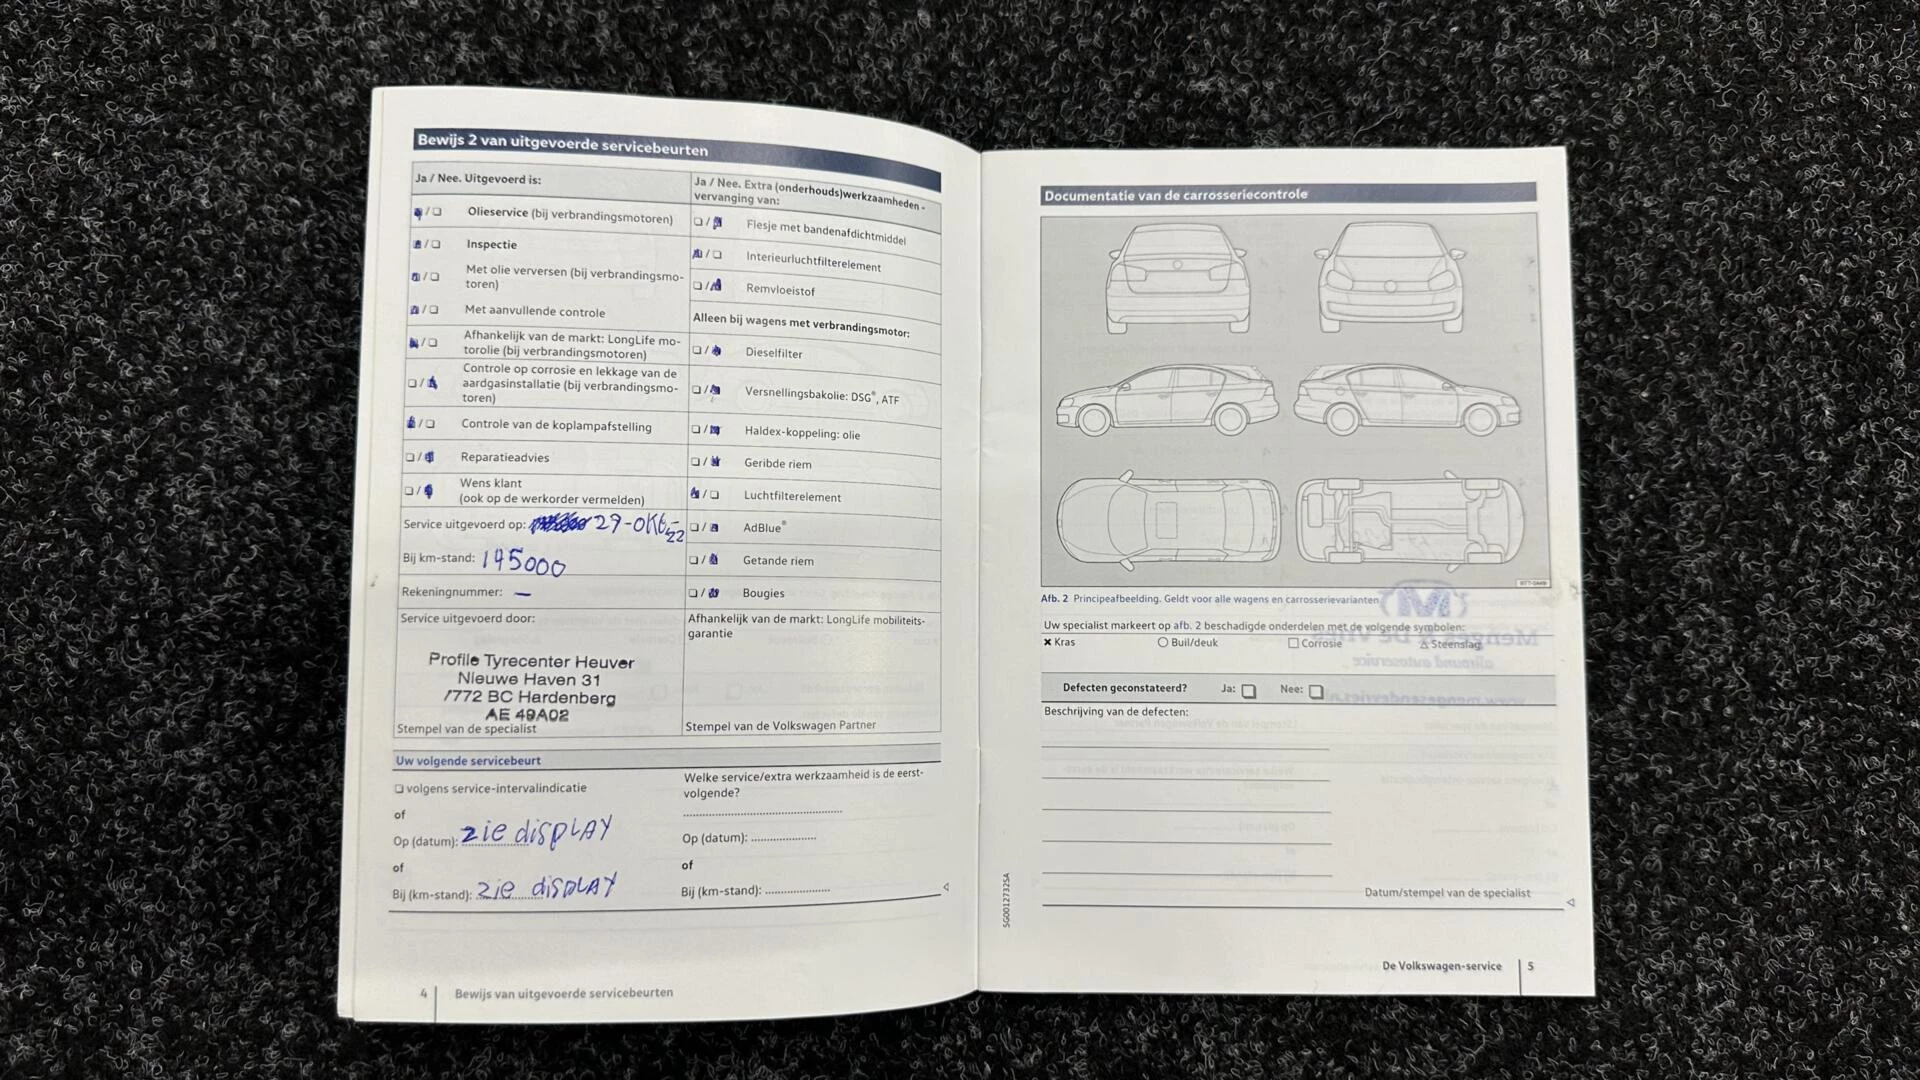 Bewijs 2 van uitgevoerde servicebeurten
Ja / Nee. Uitgevoerd is:
/ Olieservice (bij verbrandingsmotoren)
/ Inspectie
/ Met olie verversen (bij verbrandingsmo-
toren)
/ Met aanvullende controle
/ Afhankelijk van de markt: LongLife mo-
torolie (bij verbrandingsmotoren)
/ Controle op corrosie en lekkage van de
aardgasinstallatie (bij verbrandingsmo-
toren)
/ Controle van de koplampafstelling
/ Reparatieadvies
/ Wens klant
(ook op de werkorder vermelden)
Service uitgevoerd op: 29-OKt-22
Bij km-stand: 145000
Rekeningnummer: —
Service uitgevoerd door:
Profile Tyrecenter Heuver
Nieuwe Haven 31
7772 BC Hardenberg
AE 49A02
Stempel van de specialist
Ja / Nee. Extra (onderhouds)werkzaamheden -
vervanging van:
/ Flesje met bandenafdichtmiddel
/ Interieurluchtfilterelement
/ Remvloeistof
Alleen bij wagens met verbrandingsmotor:
/ Dieselfilter
/ Versnellingsbakolie: DSG®, ATF
/ Haldex-koppeling: olie
/ Geribde riem
/ Luchtfilterelement
/ AdBlue®
/ Getande riem
/ Bougies
Afhankelijk van de markt: LongLife mobiliteits-
garantie
Stempel van de Volkswagen Partner
Uw volgende servicebeurt
volgens service-intervalindicatie
of
Op (datum): zie display
of
Bij (km-stand): zie display
Welke service/extra werkzaamheid is de eerst-
volgende?
Op (datum):
of
Bij (km-stand):
4 Bewijs van uitgevoerde servicebeurten
Documentatie van de carrosseriecontrole
Afb. 2 Principeafbeelding. Geldt voor alle wagens en carrosserievarianten
Uw specialist markeert op afb. 2 beschadigde onderdelen met de volgende symbolen:
Kras Buil/deuk Corrosie Steenslag
Defecten geconstateerd? Ja: Nee:
Beschrijving van de defecten:
Datum/stempel van de specialist
5G0012732SA
De Volkswagen-service 5